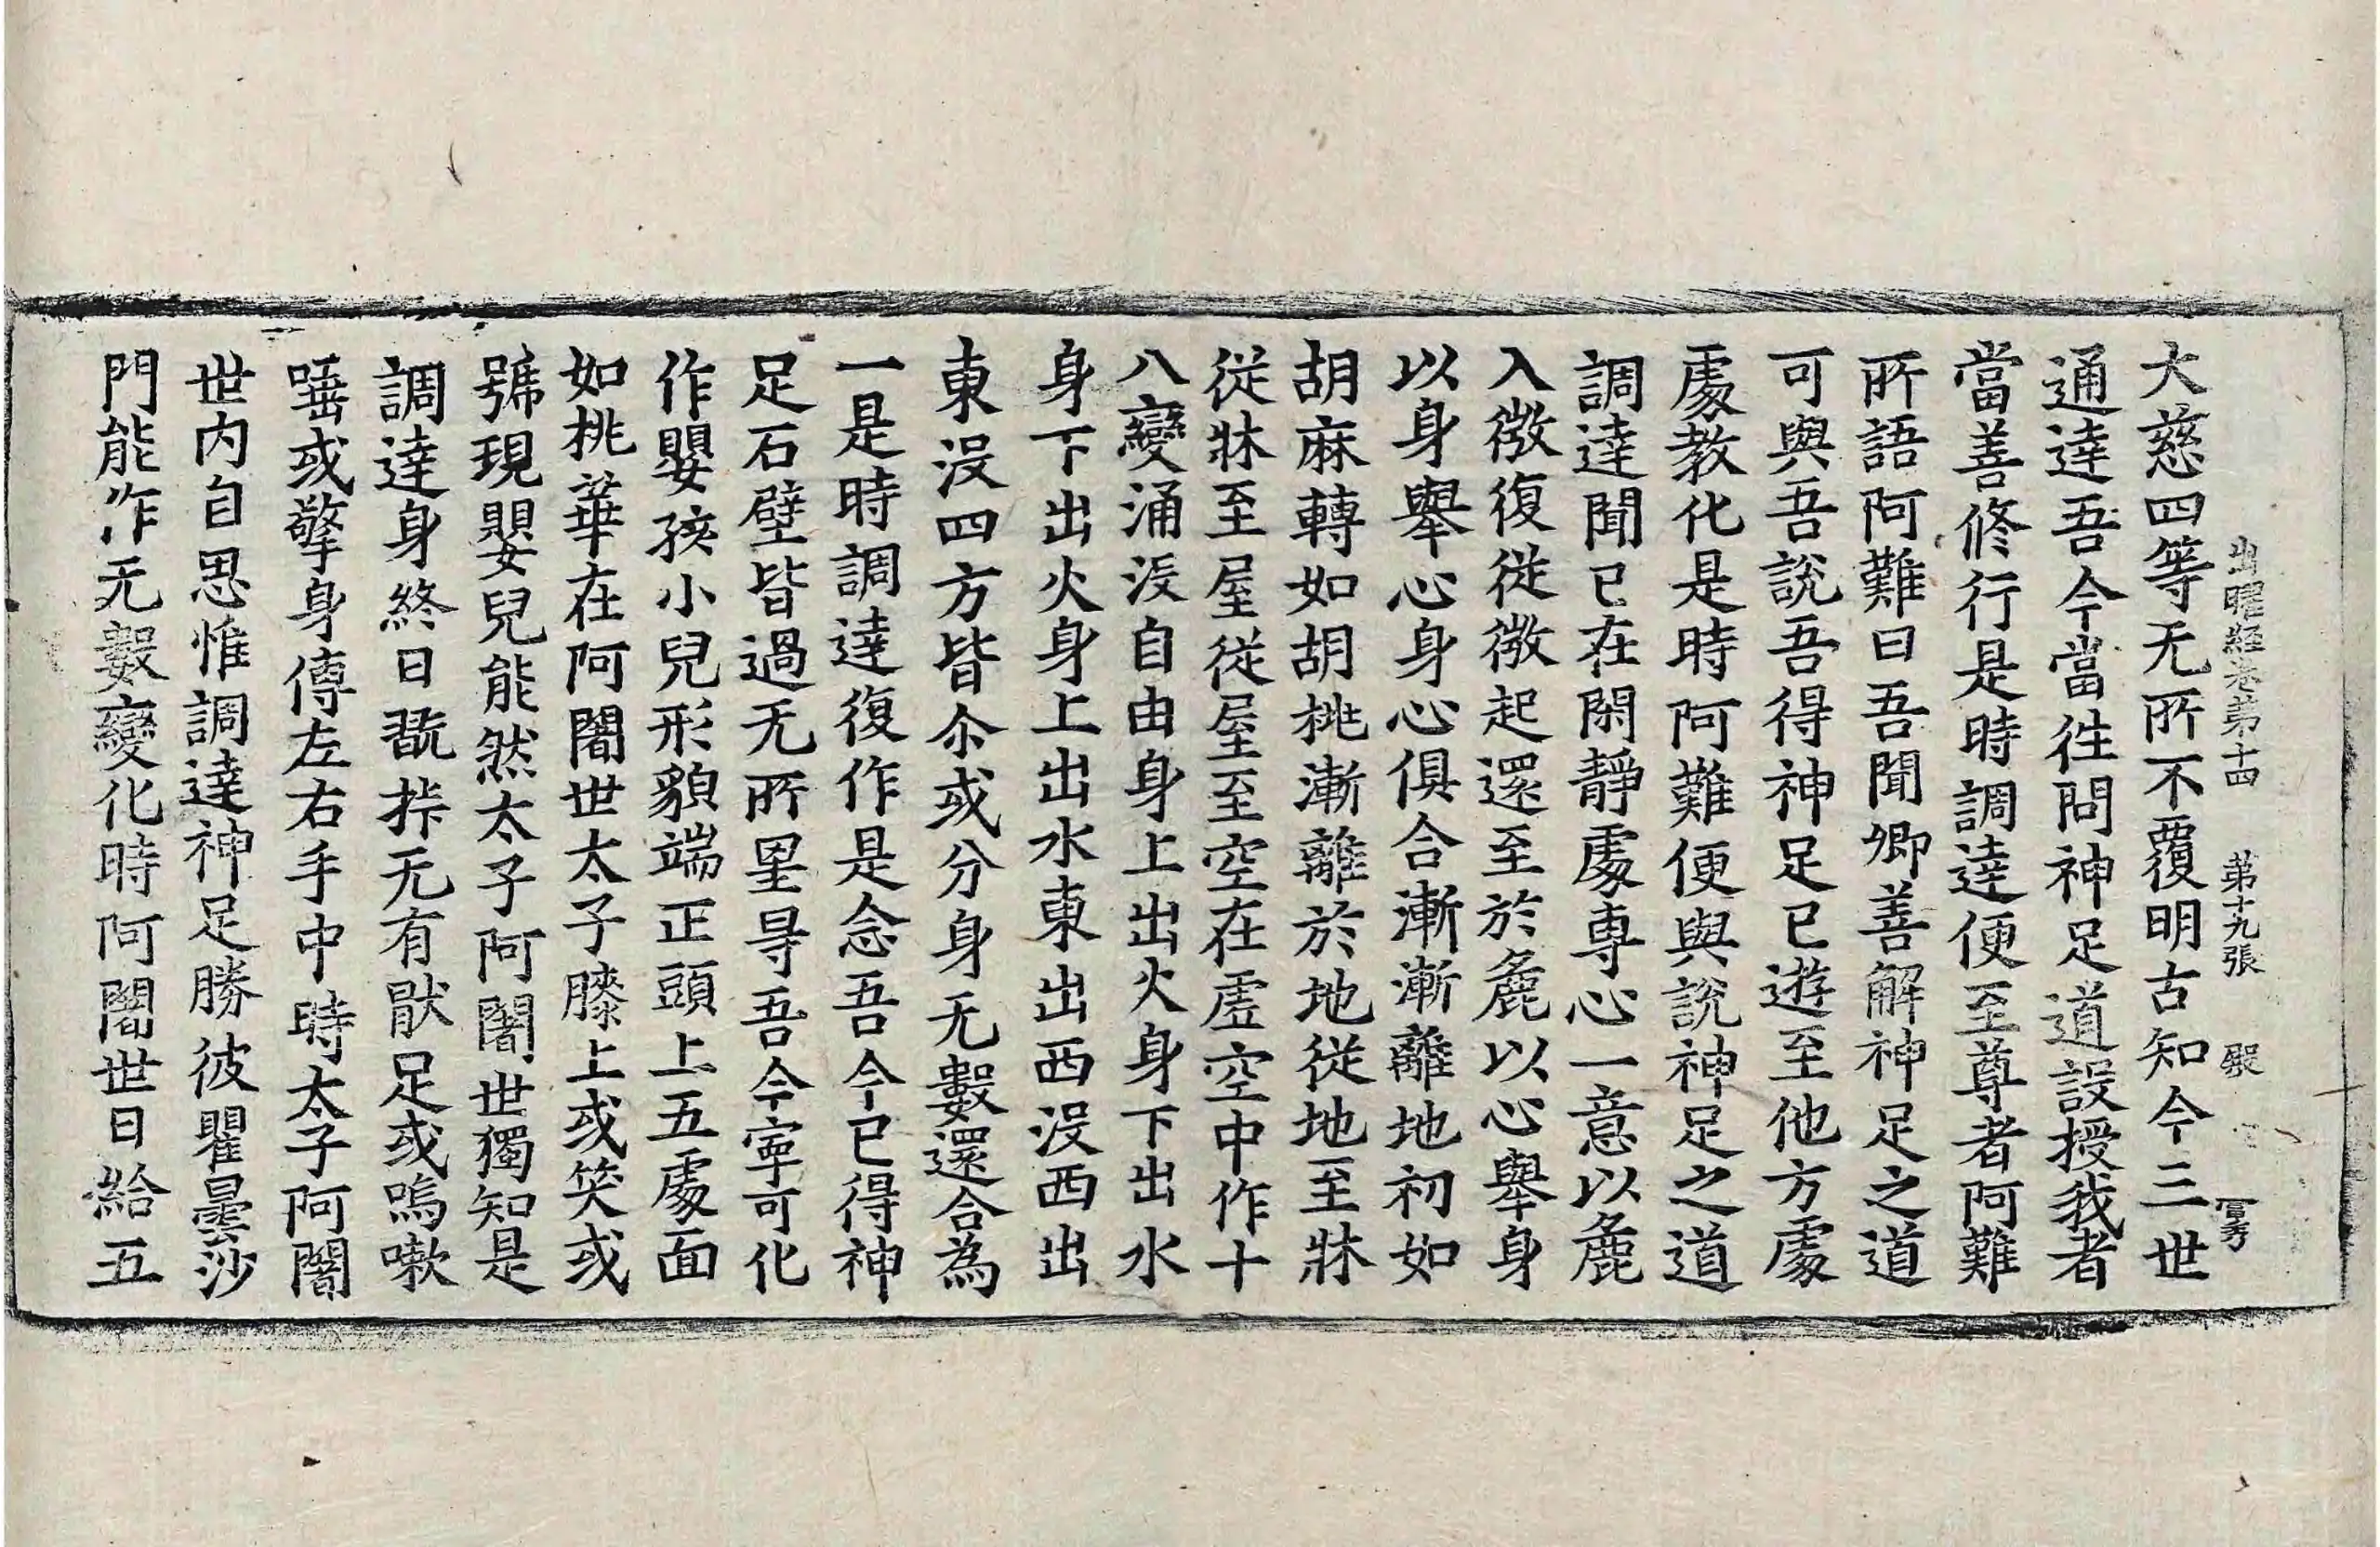 出曜經卷第十四　第十九張　毀
大慈四等无所不覆明古知今三世
通達吾今當往問神足道設授我者
當善修行是時調達便至尊者阿難
所語阿難曰吾聞卿善解神足之道
可與吾說吾得神足已遊至他方處
處教化是時阿難便與說神足之道
調達聞已在閑靜處專心一意以麁
入微復從微起還至於麁以心舉身
以身舉心身心俱合漸漸離地初如
胡麻轉如胡桃漸離於地從地至牀
從牀至屋從屋至空在虛空中作十
八變涌沒自由身上出火身下出水
身下出火身上出水東出西沒西出
東沒四方皆尒或分身无數還合為
一是時調達復作是念吾今已得神
足石壁皆過无所罣㝵吾今寧可化
作嬰孩小兒形貌端正頭上五處面
如桃華在阿闍世太子膝上或笑或
號現嬰兒能然太子阿闍世獨知是
調達身終日翫弄无有猒足或嗚嗽
唾或擎身傳左右手中時太子阿闍
世內自思惟調達神足勝彼瞿曇沙
門能作无數變化時阿闍世日給五